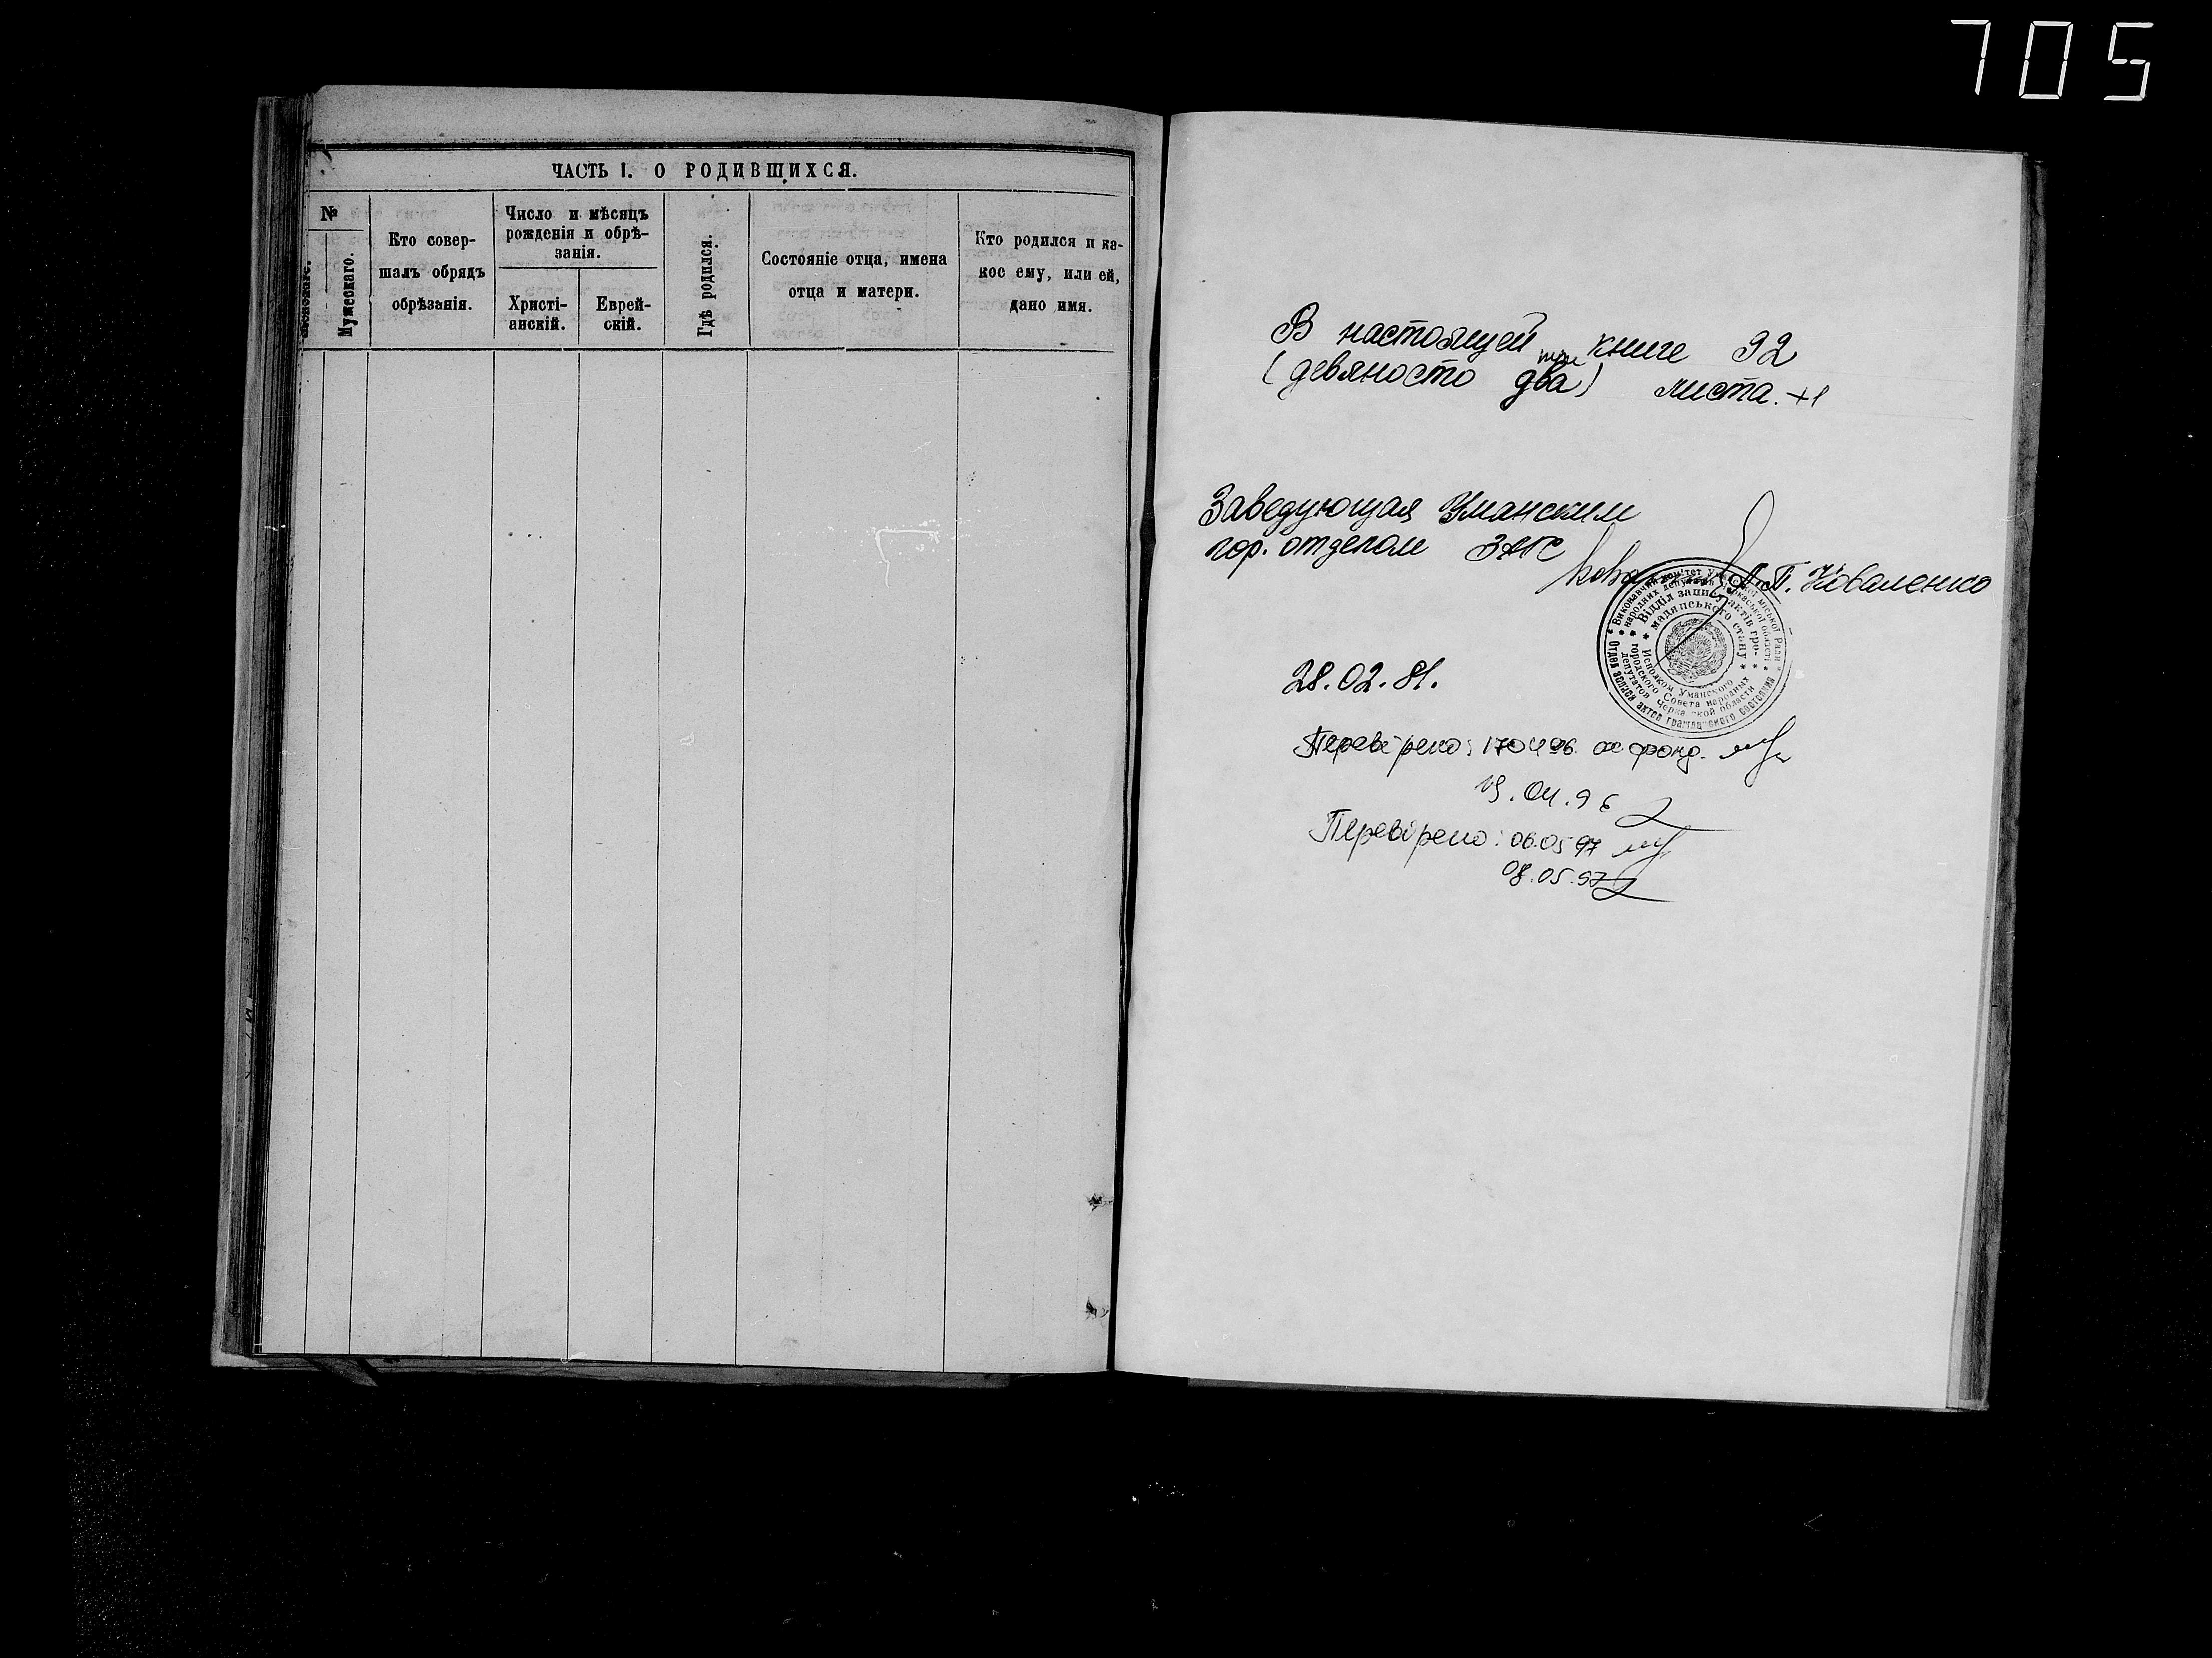 705
ЧАСТЬ I. О РОДИВШИХСЯ.
№
Женскаго.
Мужескаго.
Кто совер-
шалъ обрядъ
обрѣзанія.
Число и мѣсяцъ
рожденія и обрѣ-
занія.
Христі-
анскій.
Еврей-
скій.
Гдѣ родился.
Состояніе отца, имена
отца и матери.
Кто родился и ка-
кое ему, или ей,
дано имя.
В настоящей книге 92
три
(девяносто два) листа. +1
Заведующая Уманским
гор. отделом ЗАГС
Л.П. Коваленко
Виконавчий комітет Уманської міської Ради
народних депутатів Черкаської області
Відділ запису актів гро-
мадянського стану
Исполком Уманского
городского Совета народных
депутатов Черкасской области
Отдел записи актов гражданского состояния
28.02.81.
Перевірено: 170496. фонд.
19.04.96
Перевірено: 06.05 97
08.05.97